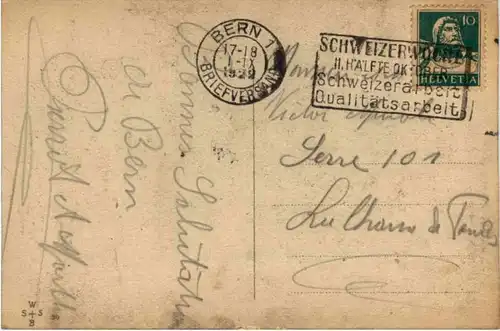 BERN 1
17-18
1-IX
BRIEFVERSAND
SCHWEIZERWOCHE
II. HÄLFTE OKTOBER
Schweizerarbeit
Qualitätsarbeit
10
HELVETIA
Bonnes Salutations
de Bern
Monsieur
Victor
Serre 101
La Chaux de Fonds
W
S S
B